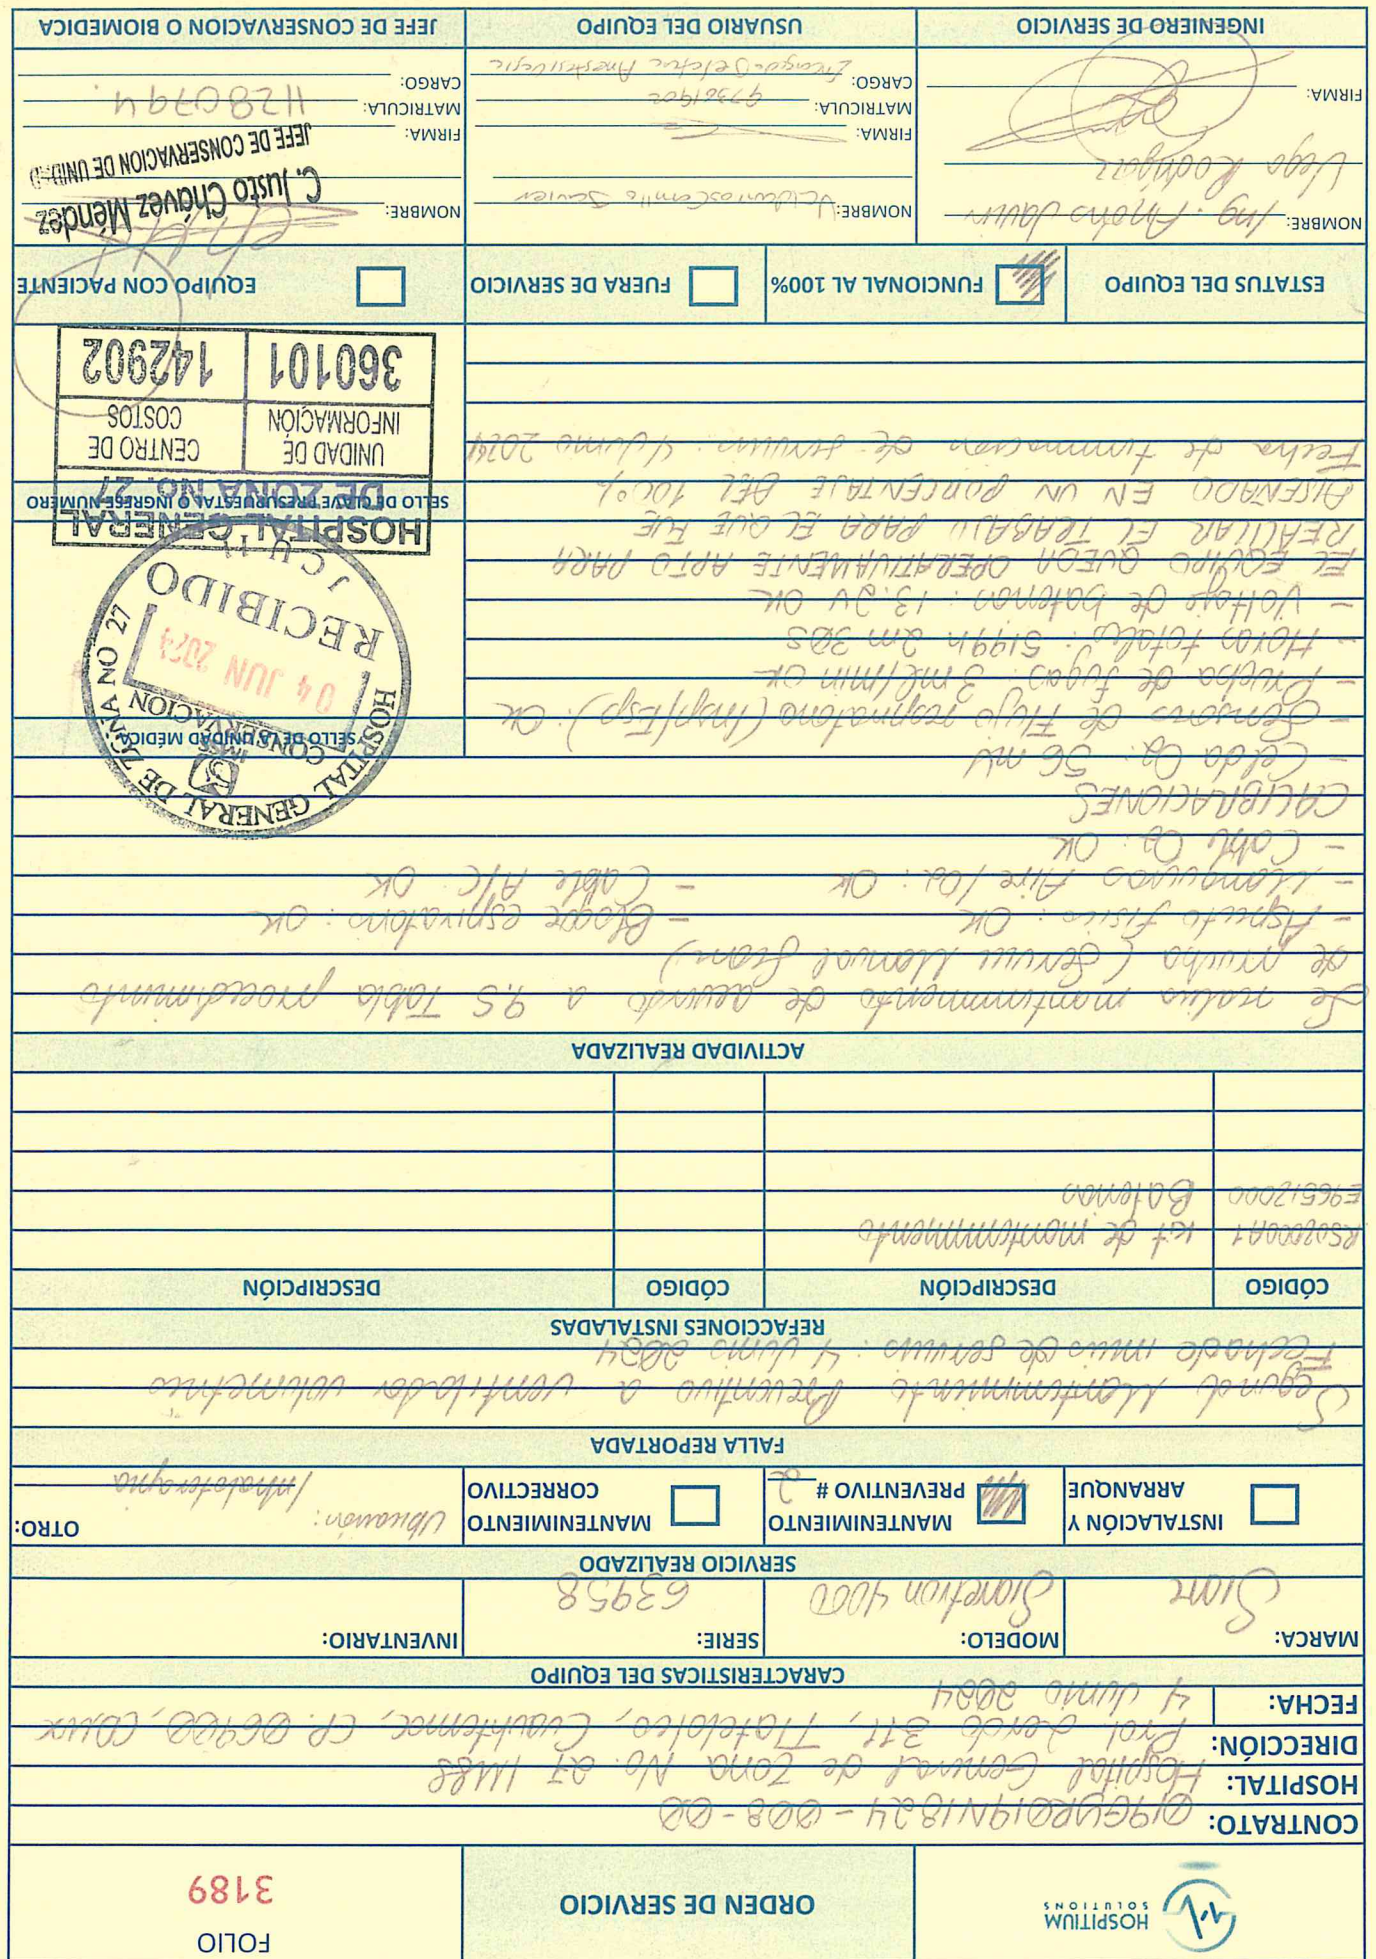 HOSPITIUM
SOLUTIONS
ORDEN DE SERVICIO
FOLIO
3189
CONTRATO: 019GYR019N1824-008-00
HOSPITAL: Hospital General de Zona No. 27 IMSS
DIRECCIÓN: Prol Lerdo 311, Tlatelolco, Cuauhtemoc, CP. 06900, CDMX
FECHA: 4 Junio 2024
CARACTERISTICAS DEL EQUIPO
MARCA: Siare
MODELO: Siaretron 4000
SERIE: 63958
INVENTARIO:
SERVICIO REALIZADO
INSTALACIÓN Y ARRANQUE
MANTENIMIENTO PREVENTIVO # 2
MANTENIMIENTO CORRECTIVO
OTRO:
Ubicación:
Inhaloterapia
FALLA REPORTADA
Segundo Mantenimiento Preventivo a ventilador volumetrico
Fecha de inicio de servicio: 4 Junio 2024
REFACCIONES INSTALADAS
CÓDIGO DESCRIPCIÓN CÓDIGO DESCRIPCIÓN
RS02000A1 kit de mantenimiento
E96512000 Baterias
ACTIVIDAD REALIZADA
Se realiza mantenimiento de acuerdo a 9.5 Tabla procedimiento
de prueba (Service Manual Siare)
- Aspecto fisico: OK - Bloque espiratorio: OK
- Mangueras Aire/O2: OK - Cable A/C: OK
- Cable O2: OK
CALIBRACIONES
- Celda O2: 56 mV
- Sensores de Flujo respiratorio (Insp/Esp): OK
- Prueba de fugas: 3 ml/min OK
- Horas totales: 5199h 2m 30s
- Voltaje de baterias: 13.2v OK
EL EQUIPO QUEDA OPERATIVAMENTE APTO PARA
REALIZAR EL TRABAJO PARA EL QUE FUE
DISEÑADO EN UN PORCENTAJE DEL 100%
Fecha de terminacion de servicio: 4 Junio 2024
SELLO DE LA UNIDAD MÉDICA
HOSPITAL GENERAL DE ZONA NO 27
IMSS
CONSERVACION
04 JUN 2024
RECIBIDO
SELLO DE CLAVE PRESUPUESTAL O INGRESE NUMERO
HOSPITAL GENERAL
DE ZONA NO. 27
UNIDAD DE INFORMACIÓN
CENTRO DE COSTOS
360101
142902
ESTATUS DEL EQUIPO
FUNCIONAL AL 100%
FUERA DE SERVICIO
EQUIPO CON PACIENTE
NOMBRE: Ing. Antonio Javier
Vega Rodriguez
FIRMA:
INGENIERO DE SERVICIO
NOMBRE: Javier
FIRMA:
MATRICULA: 97361902
CARGO: Encargado
USUARIO DEL EQUIPO
NOMBRE:
C. Justo Chávez Méndez
JEFE DE CONSERVACION DE UNIDAD
FIRMA:
MATRICULA: 11280794
CARGO:
JEFE DE CONSERVACION O BIOMEDICA